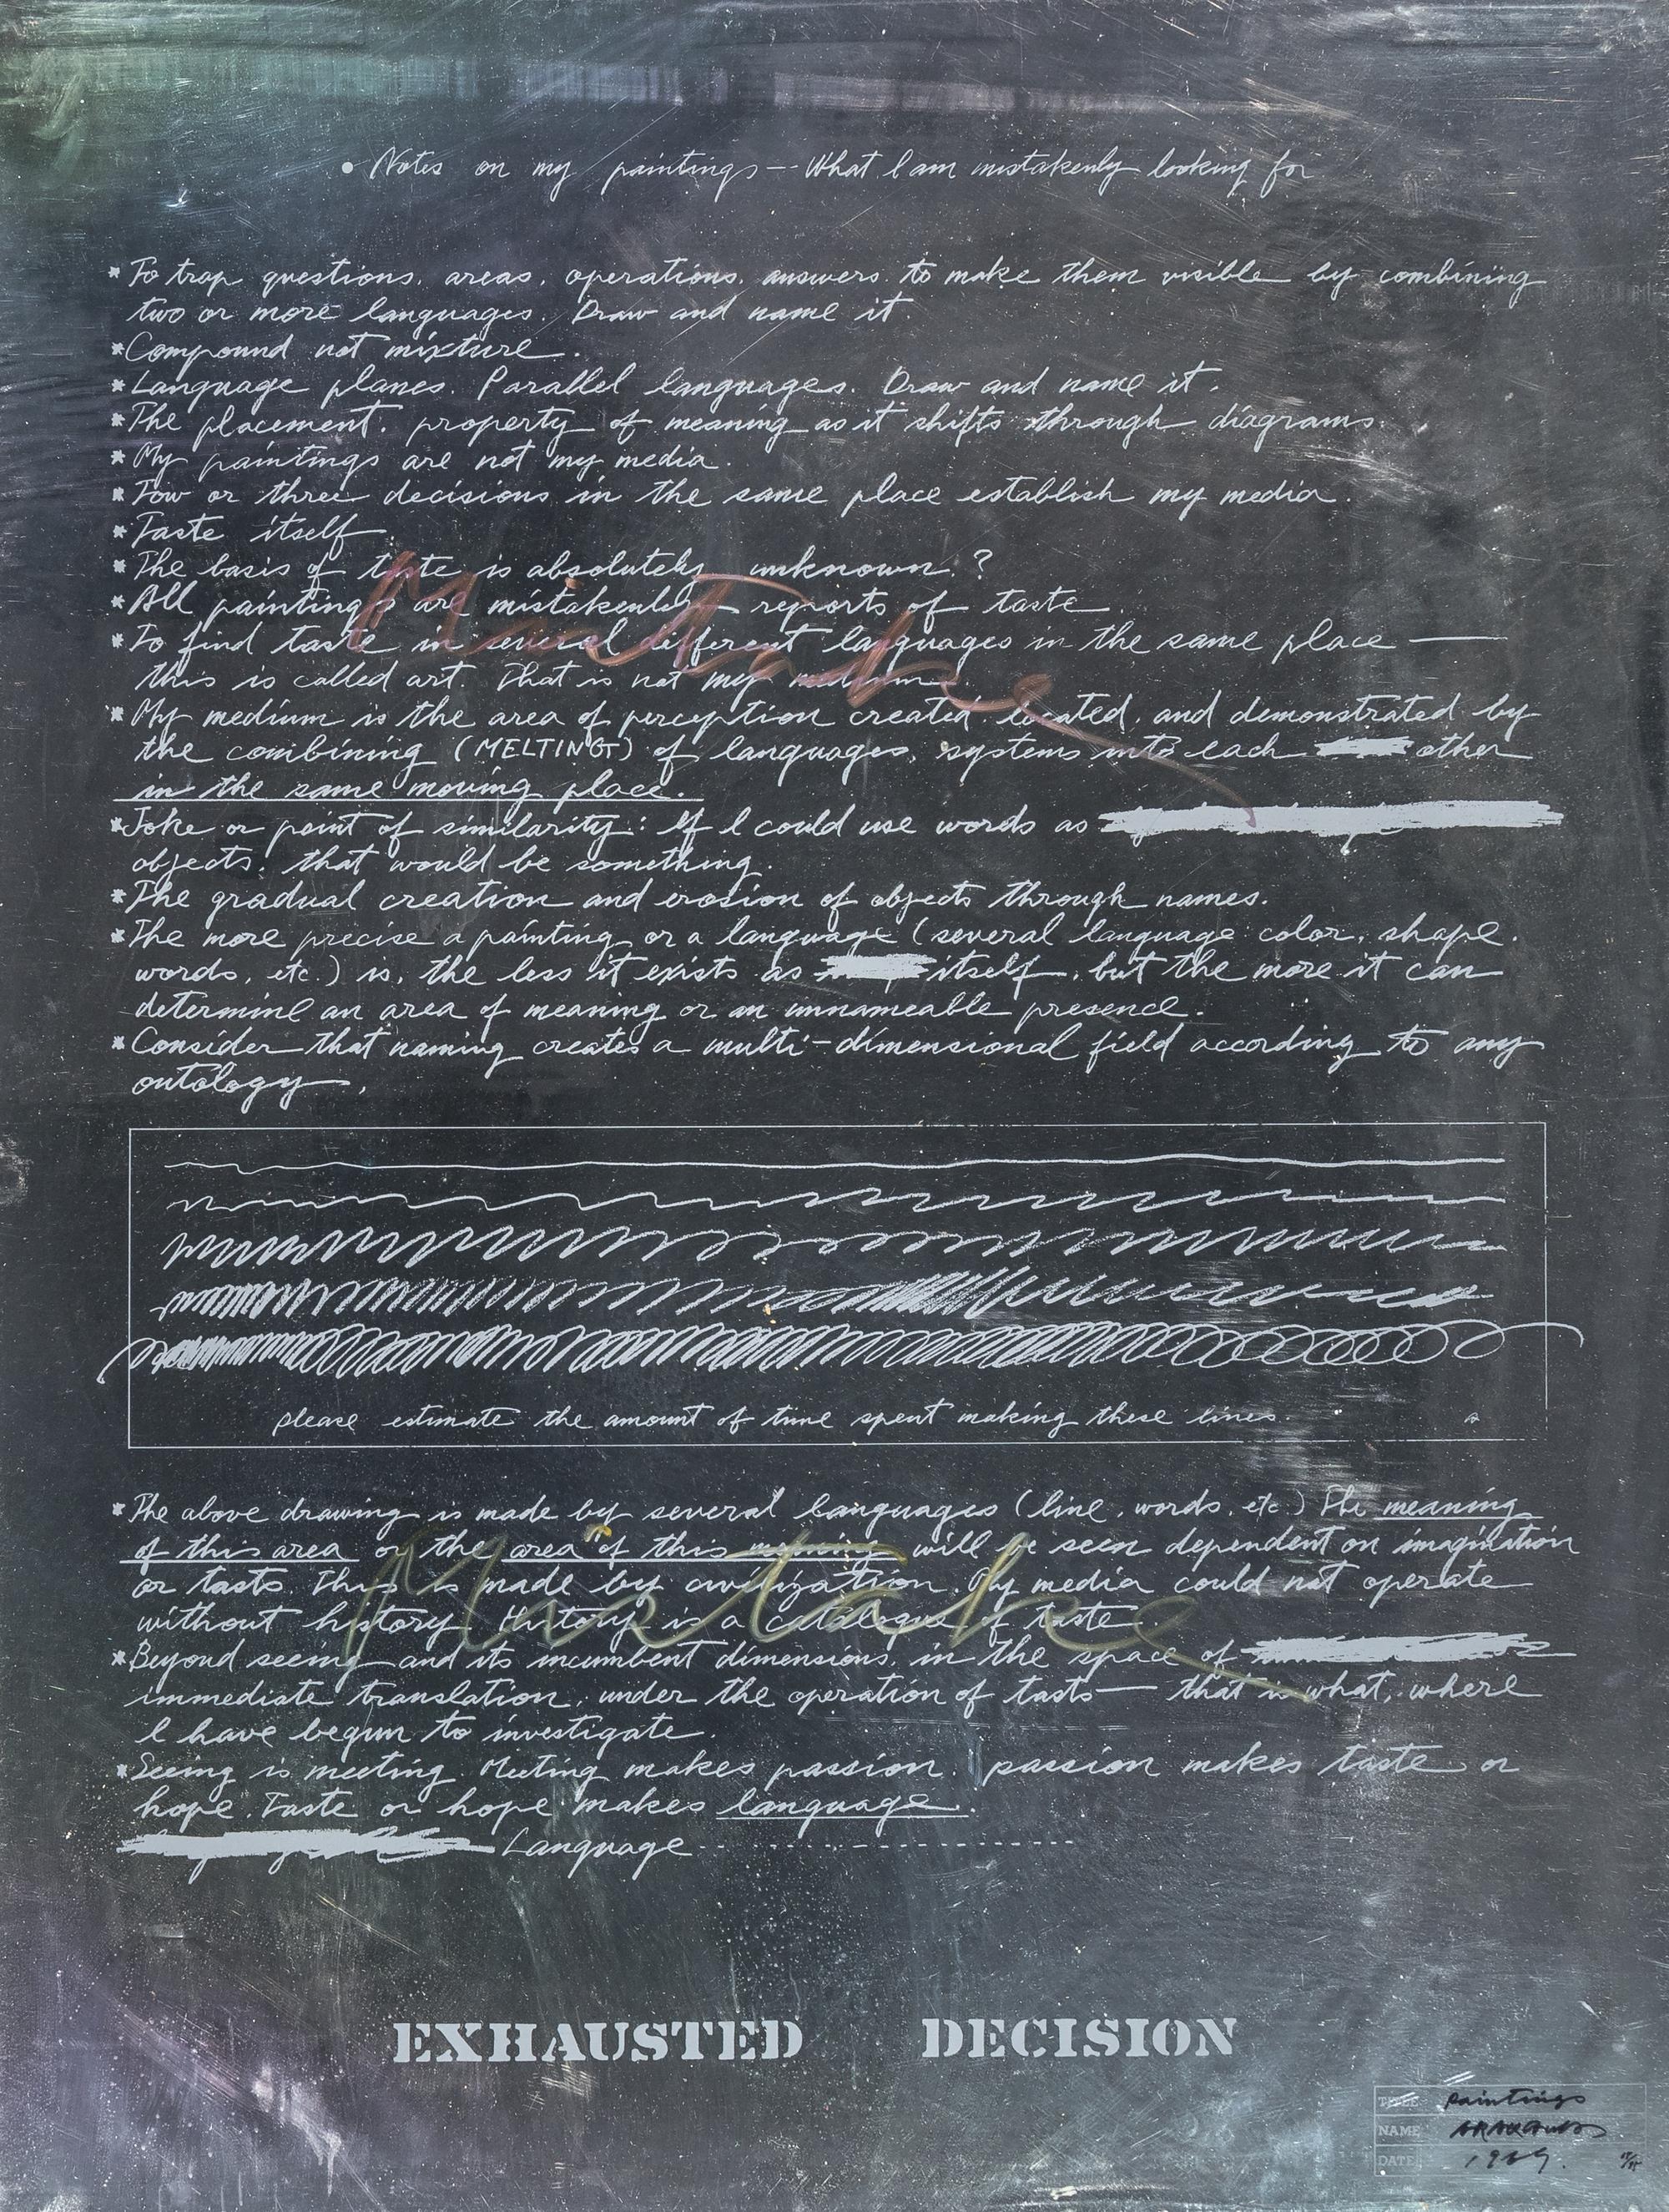 • Notes on my paintings -- What I am mistakenly looking for
* To trap questions, areas, operations, answers, to make them visible by combining
two or more languages. Draw and name it
* Compound not mixture.
* Language planes. Parallel languages. Draw and name it.
* The placement, property of meaning as it shifts through diagrams.
* My paintings are not my media.
* Tow or three decisions in the same place establish my media.
* Taste itself
* The basis of taste is absolutely unknown.?
* All paintings are mistakenly reports of taste.
* To find taste in several different languages in the same place —
this is called art. That is not my medium.
Mistake
* My medium is the area of perception created, located, and demonstrated by
the combining (MELTING) of languages, systems into each other
in the same moving place.
* Joke or point of similarity: If I could use words as
objects, that would be something.
* The gradual creation and erosion of objects through names.
* The more precise a painting or a language (several language: color, shape,
words, etc.) is, the less it exists as itself, but the more it can
determine an area of meaning or an unnameable presence.
* Consider that naming creates a multi-dimensional field according to any
ontology.
please estimate the amount of time spent making these lines.
* The above drawing is made by several languages (line, words, etc.) The meaning
of this area or the area of this meaning will be seen dependent on imagination
or tasts. This is made by civilization. My media could not operate
without history. History is a catalogue of taste.
Mistake
* Beyond seeing and its incumbent dimensions, in the space of
immediate translation, under the operation of tasts — that is what, where
I have begun to investigate.
* Seeing is meeting. Meeting makes passion. passion makes taste or
hope. Taste or hope makes language.
Language - - - - - - - - - - - - - - - - - - - -
EXHAUSTED DECISION
TITLE Paintings
NAME ARAKAWA
DATE 1969.